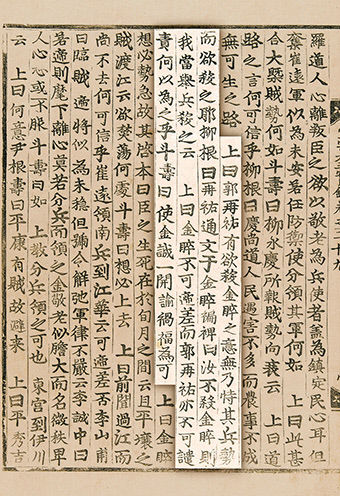 羅道人心離叛臣之欲以敬老為兵使者蓋為鎮定民心耳但
奪崔遠軍以為未安若任防禦使分領其軍何如 上曰此甚
合大槩賊勢何如斗壽曰柳永慶所報賊勢向我云 上曰道
路之言何可信乎柳根曰慶尚道人民遇害不多而農事不成
無可生之路 上曰郭再祐有欲殺金睟之意無乃恃其兵勢
而欲殺之耶柳根曰再祐通文于金睟褊裨曰汝不殺金睟則
我當擧兵殺之云 上曰金睟不可遞差而郭再祐亦不可譴
責何以為之乎斗壽曰使金誠一開諭禍福為可 上曰金睟
想必勢急故其啓本曰臣之生死在於旬月之間云且平壤之
賊渡江云欲焚蕩何處斗壽曰想必上去 上曰前聞過江而
尚不去何可信乎崔遠領南兵到江華云可遞差否李山甫
曰臨賊遞將似為未穩但號令解弛軍律不嚴云李誠中曰
若遞則麾下離心莫若分兵而領之金敬老似膽大而名微秩卑
人心心或不服斗壽曰如 上教分兵領之可也 東宮到伊川
云 上曰何意尹根壽曰平康有賊故避來 上曰平秀吉